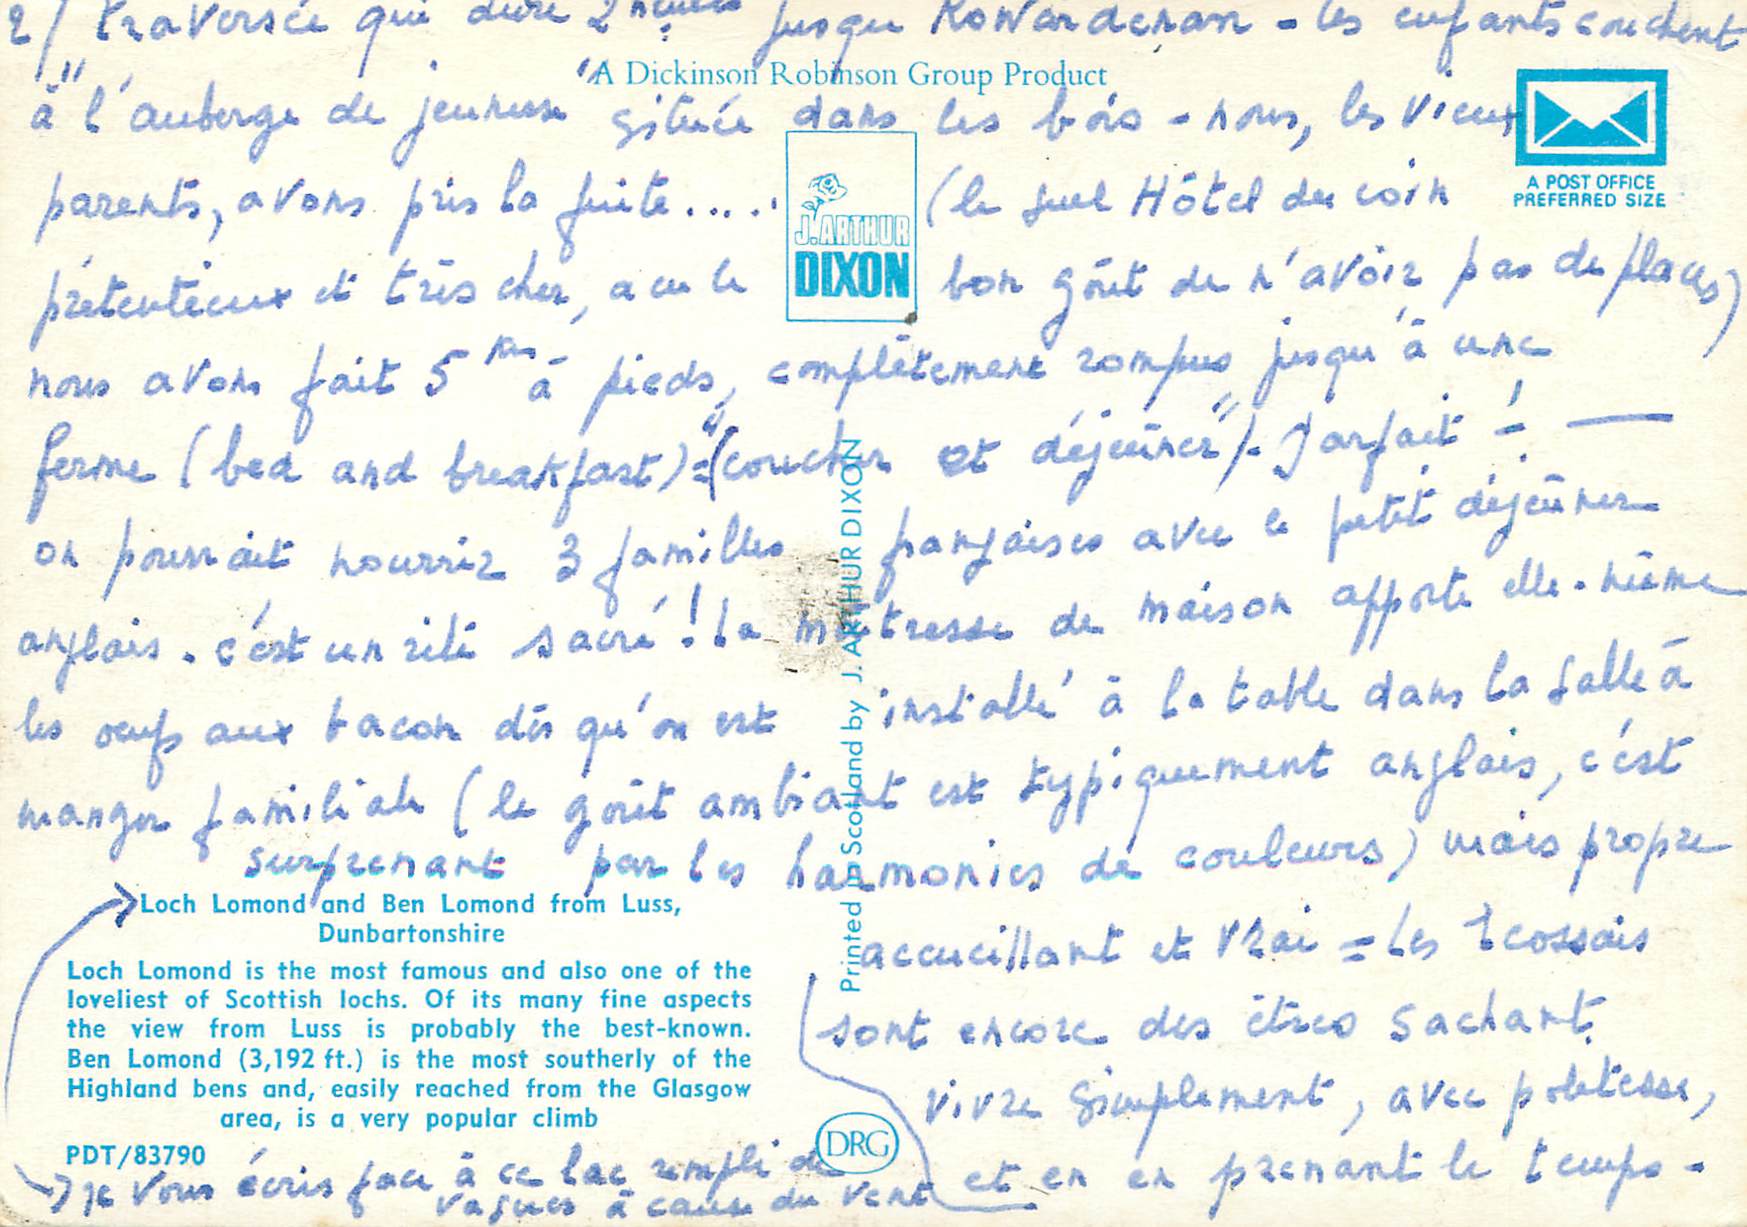 2/ traversée qui dure 2 heures jusque Rowardenan - les enfants couchent
"A Dickinson Robinson Group Product
à l'auberge de jeunesse située dans les bois - nous, les vieux
A POST OFFICE
PREFERRED SIZE
parents, avons pris la fuite..... (le seul Hôtel du coin
J. ARTHUR
DIXON
prétentieux et très cher, a eu le bon goût de n'avoir pas de places)
nous avons fait 5 km à pieds, complètement rompus jusqu'à une
ferme (bed and breakfast) = "(coucher et déjeûner"). Parfait ! —
on pourrait nourrir 3 familles françaises avec le petit déjeûner
anglais. c'est un rite sacré ! La maîtresse de maison apporte elle-même
les oeufs aux bacon dès qu'on est installé à la table dans la salle à
manger familiale (le goût ambiant est typiquement anglais, c'est
surprenant par les harmonies de couleurs) mais propre
accueillant et vrai = les Ecossais
sont encore des êtres sachant
vivre simplement, avec politesse,
et en en prenant le temps -
Printed in Scotland by J. ARTHUR DIXON
Loch Lomond and Ben Lomond from Luss,
Dunbartonshire
Loch Lomond is the most famous and also one of the
loveliest of Scottish lochs. Of its many fine aspects
the view from Luss is probably the best-known.
Ben Lomond (3,192 ft.) is the most southerly of the
Highland bens and, easily reached from the Glasgow
area, is a very popular climb
PDT/83790
DRG
→ je vous écris face à ce lac rempli de
vagues à cause du vent